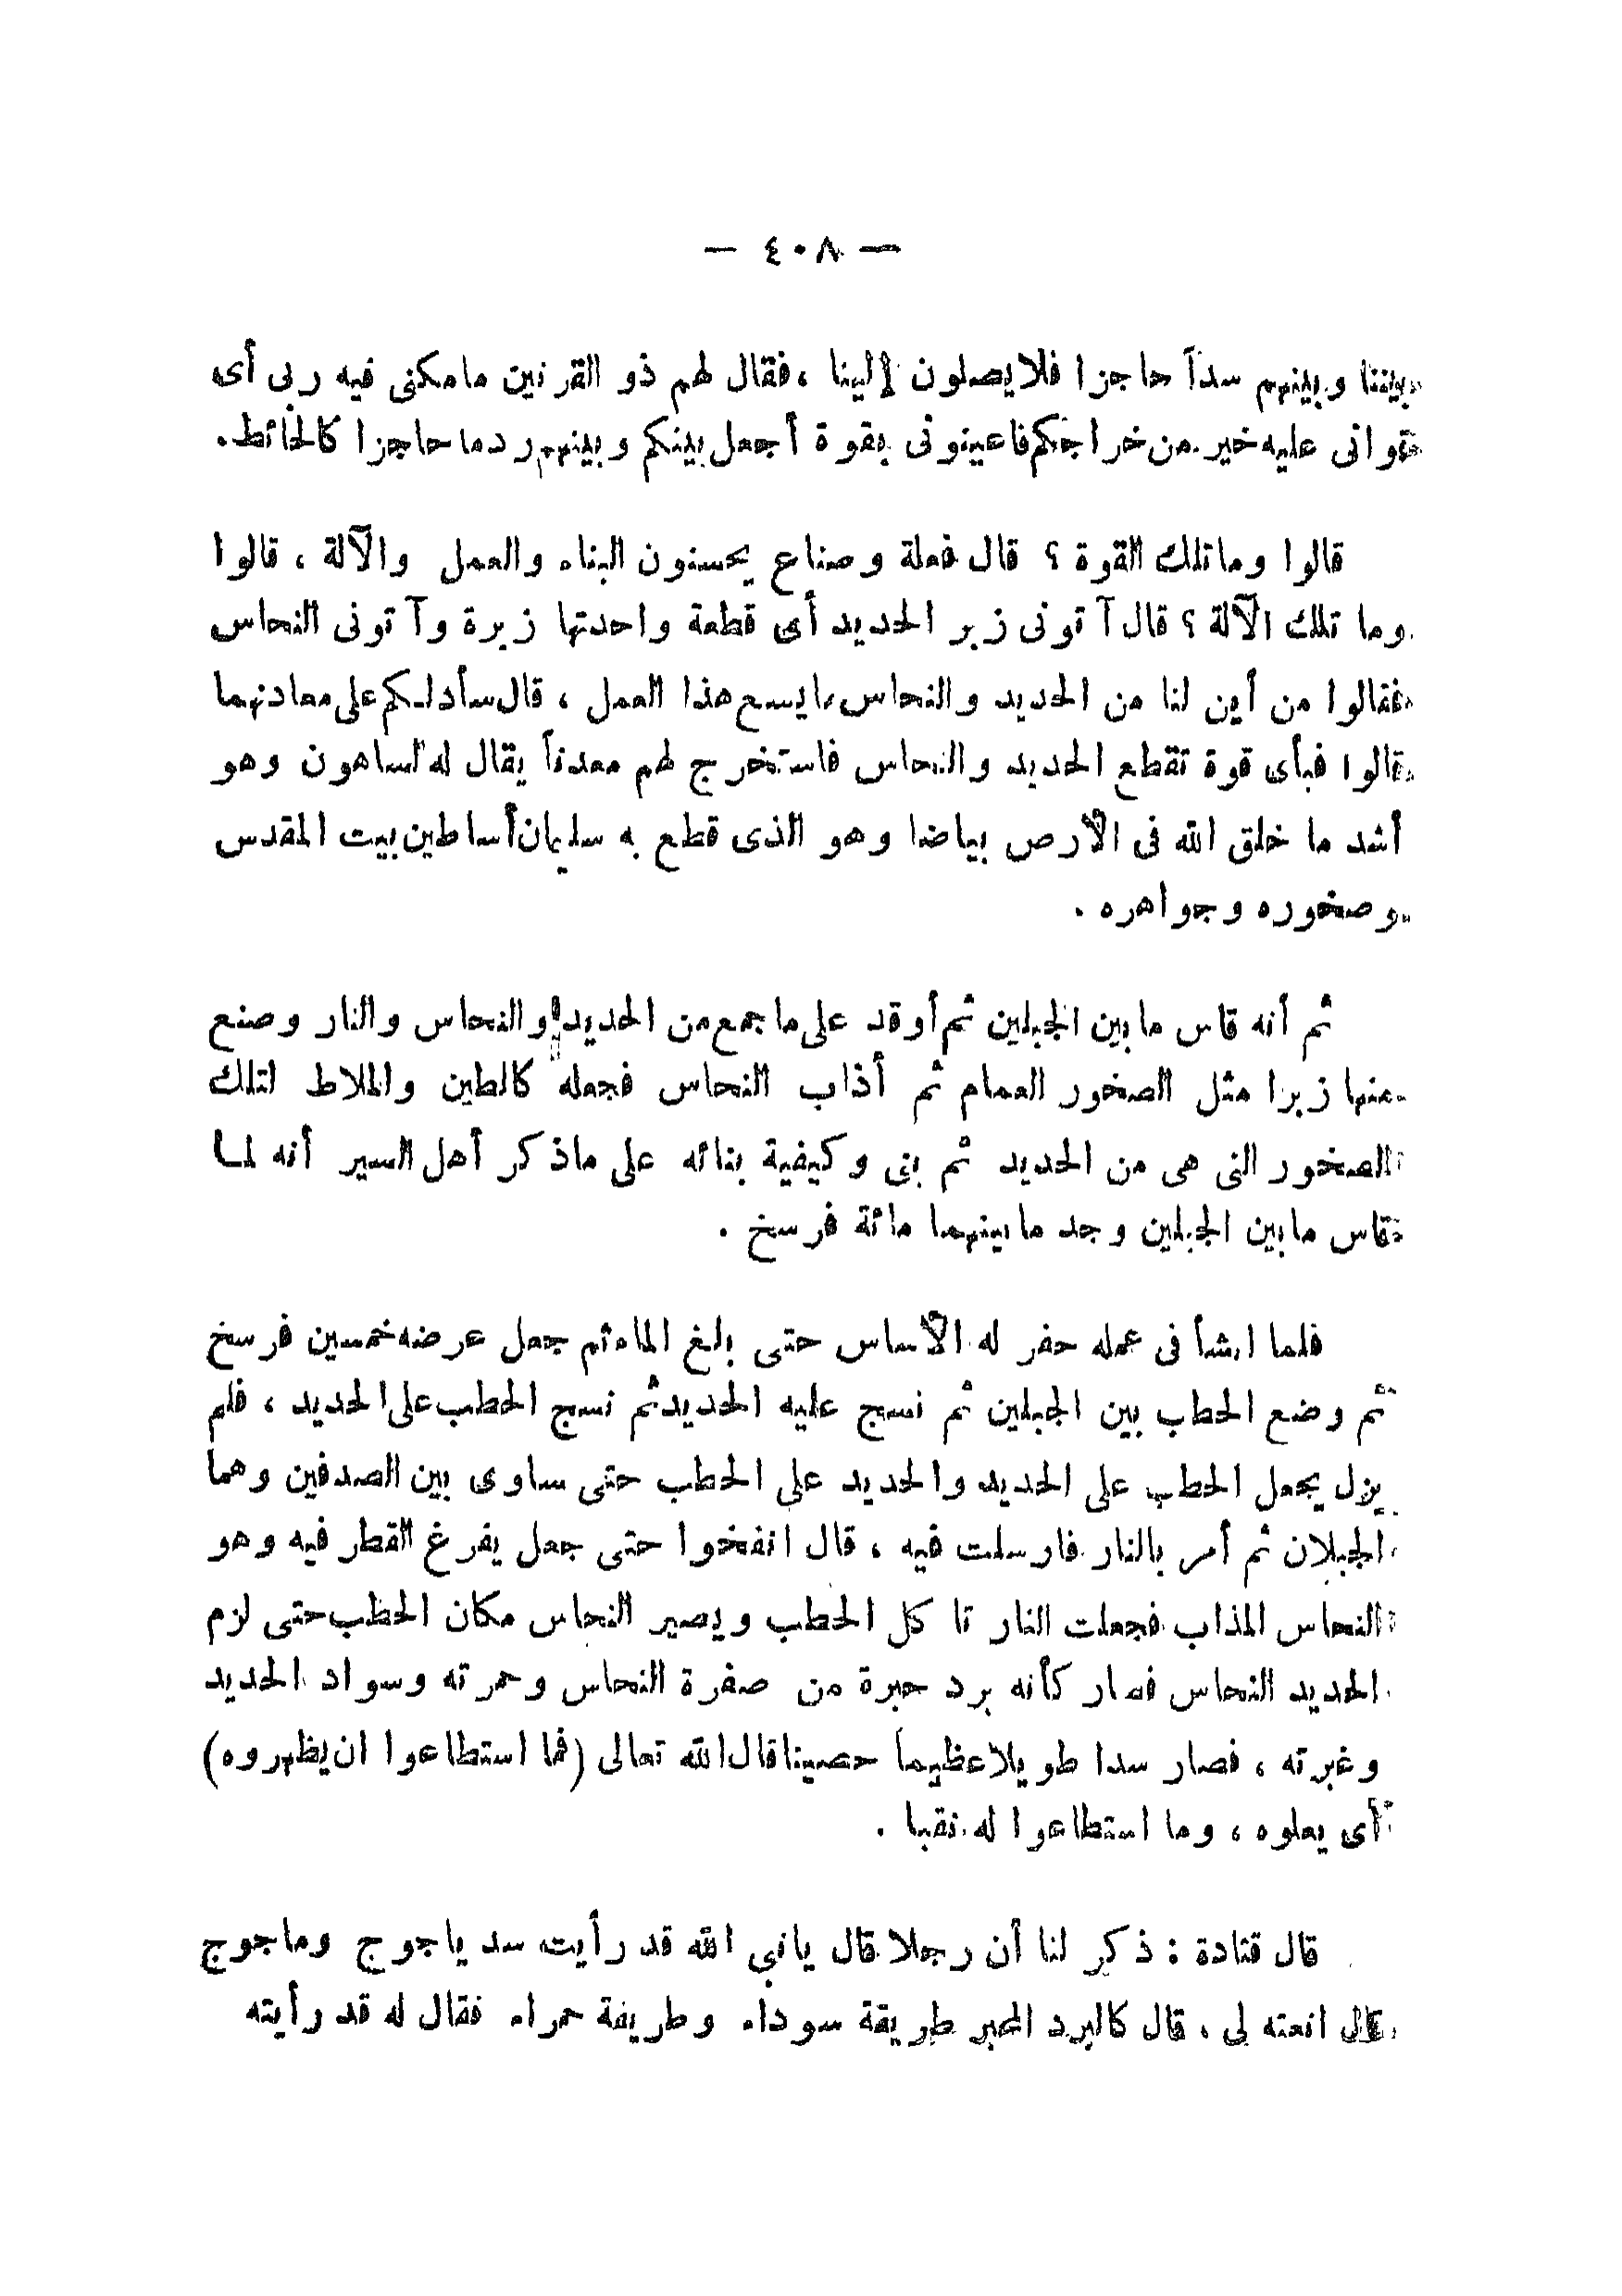 — ٤٠٨ —
بيننا وبينهم سداً حاجزا فلا يصلون إلينا ، فقال لهم ذو القرنين مامكنى فيه ربى أى
قوانى عليه خير من خراجكم فاعينونى بقوة أجعل بينكم وبينهم ردما حاجزا كالحائط .
قالوا وماتلك القوة ؟ قال فعلة وصناع يحسنون البناء والعمل والآلة ، قالوا
وما تلك الآلة ؟ قال آتونى زبر الحديد أى قطعة واحدتها زبرة وآتونى النحاس
فقالوا من أين لنا من الحديد والنحاس ما يسع هذا العمل ، قال سأدلكم على معادنهما
قالوا فبأى قوة تقطع الحديد والنحاس فاستخرج لهم معدناً يقال له الساهون وهو
أشد ما خلق الله فى الأرض بياضا وهو الذى قطع به سليمان أساطين بيت المقدس
وصخوره وجواهره .
ثم أنه قاس مابين الجبلين ثم أوقد على ما جمع من الحديد والنحاس والنار وصنع
منها زبرا مثل الصخور العمام ثم أذاب النحاس فجعله كالطين والملاط لتلك
الصخور التى هى من الحديد ثم بنى وكيفية بنائه على ماذكر أهل السير أنه لما
قاس مابين الجبلين وجد مابينهما مائة فرسخ .
فلما انشأ فى عمله حفر له الأساس حتى بلغ الماء ثم جعل عرضه خمسين فرسخ
ثم وضع الحطب بين الجبلين ثم نسج عليه الحديد ثم نسج الحطب على الحديد ، فلم
يزل يجعل الحطب على الحديد والحديد على الحطب حتى ساوى بين الصدفين وهما
الجبلان ثم أمر بالنار فارسلت فيه ، قال انفخوا حتى جعل يفرغ القطر فيه وهو
النحاس المذاب فجعلت النار تا كل الحطب ويصير النحاس مكان الحطب حتى لزم
الحديد النحاس فصار كأنه برد حبرة من صفرة النحاس وحمرته وسواد الحديد
وغبرته ، فصار سدا طويلا عظيما حصينا قال الله تعالى (فما استطاعوا ان يظهروه)
أى يعلوه ، وما استطاعوا له نقبا .
قال قتادة : ذكر لنا أن رجلا قال يانبى الله قد رأيت سد ياجوج وماجوج
قال انعته لى ، قال كالبرد المحبر طريقة سوداء وطريقة حمراء فقال له قد رأيته